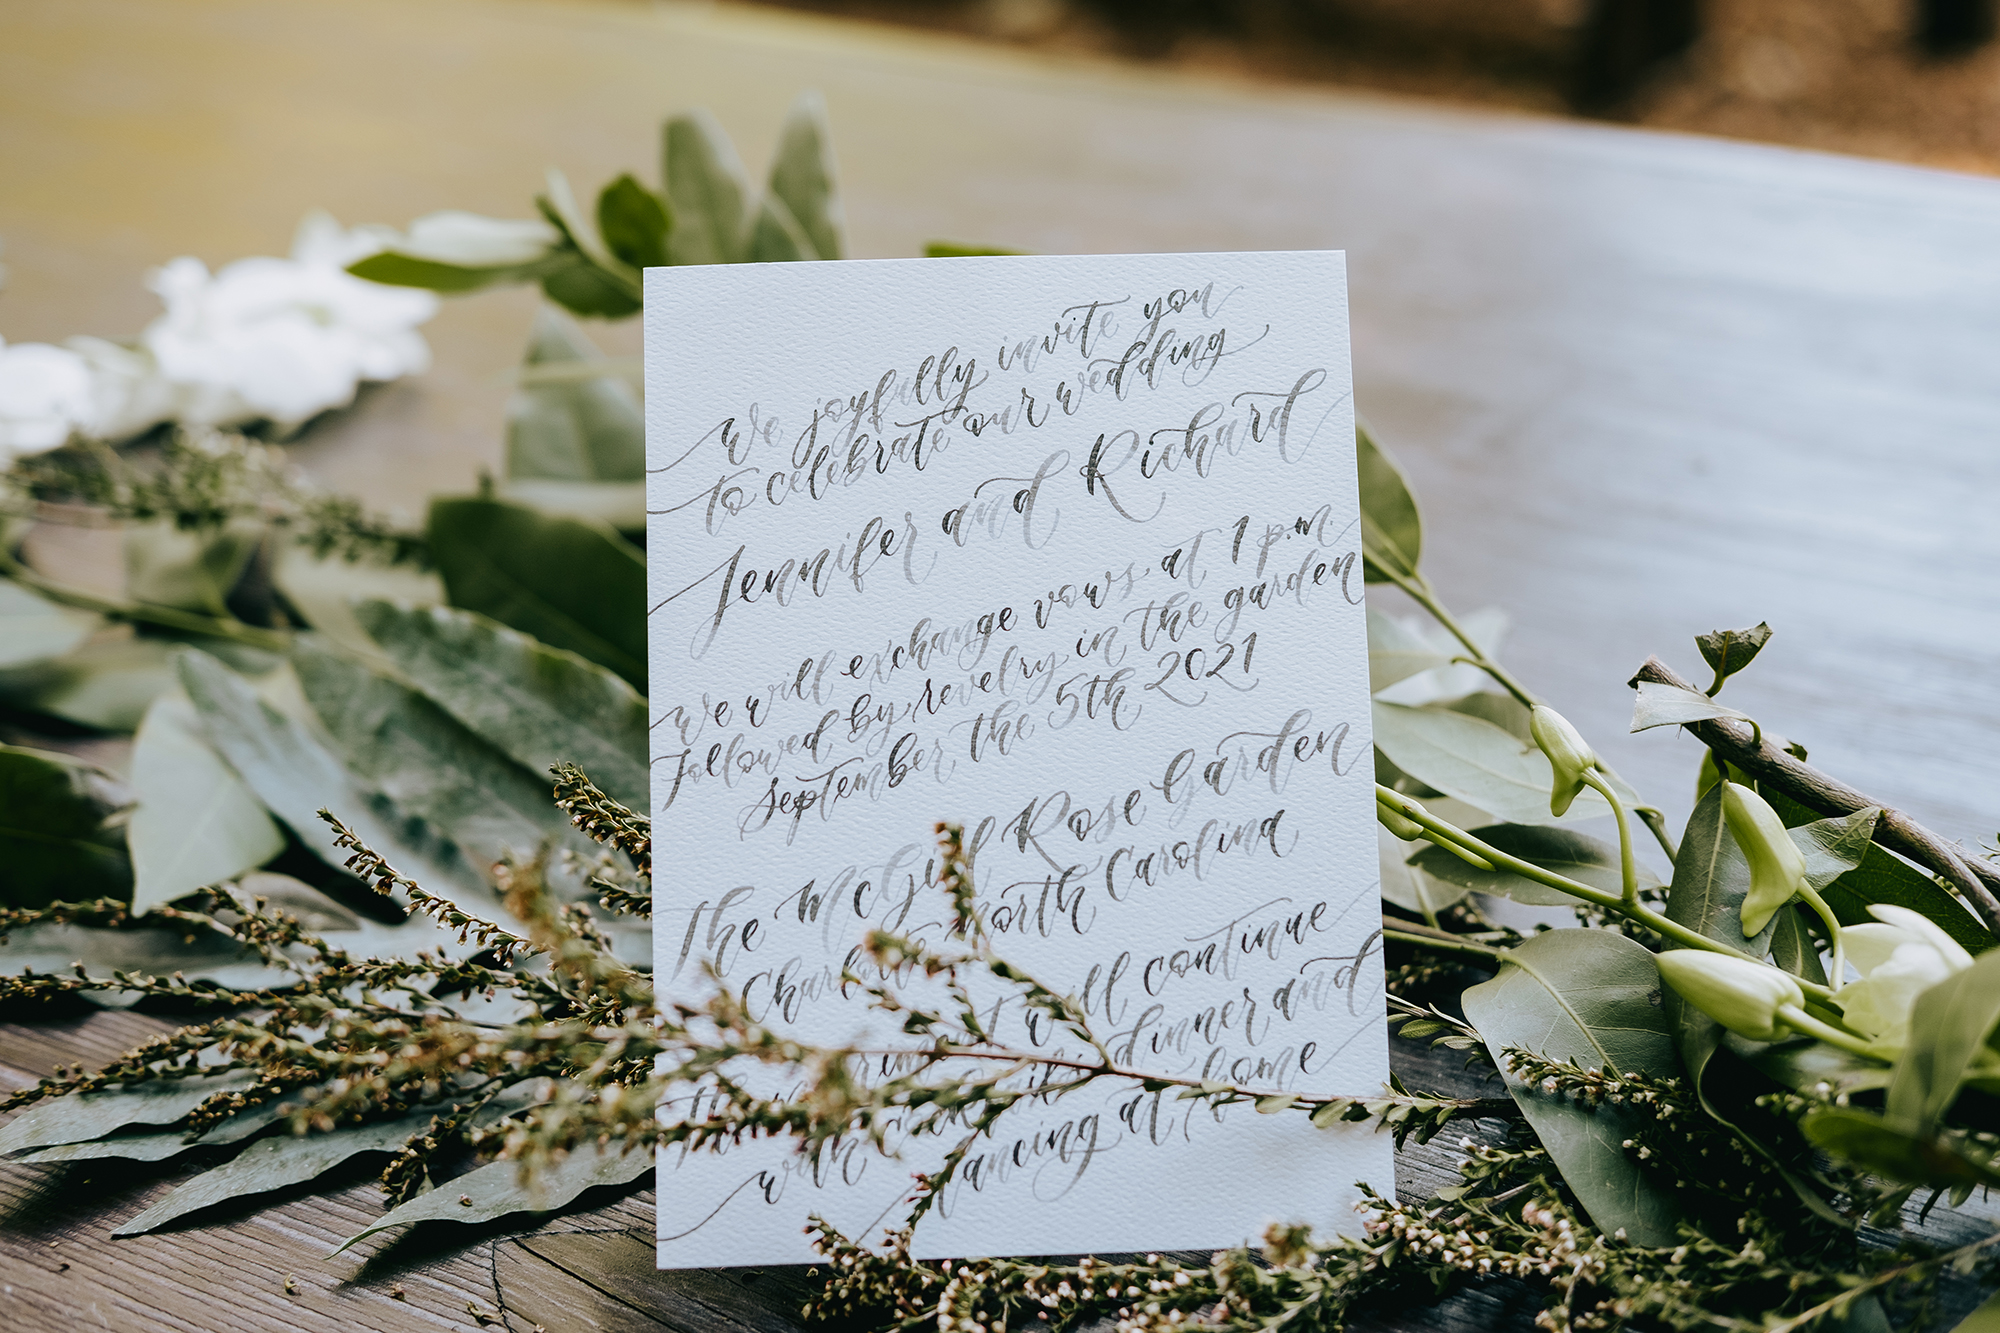 We joyfully invite you
to celebrate our wedding
Jennifer and Richard
We will exchange vows at 1 p.m.
Followed by revelry in the garden
September the 5th 2021
The McGill Rose Garden
Charlotte North Carolina
will continue
with dinner and
dancing at home